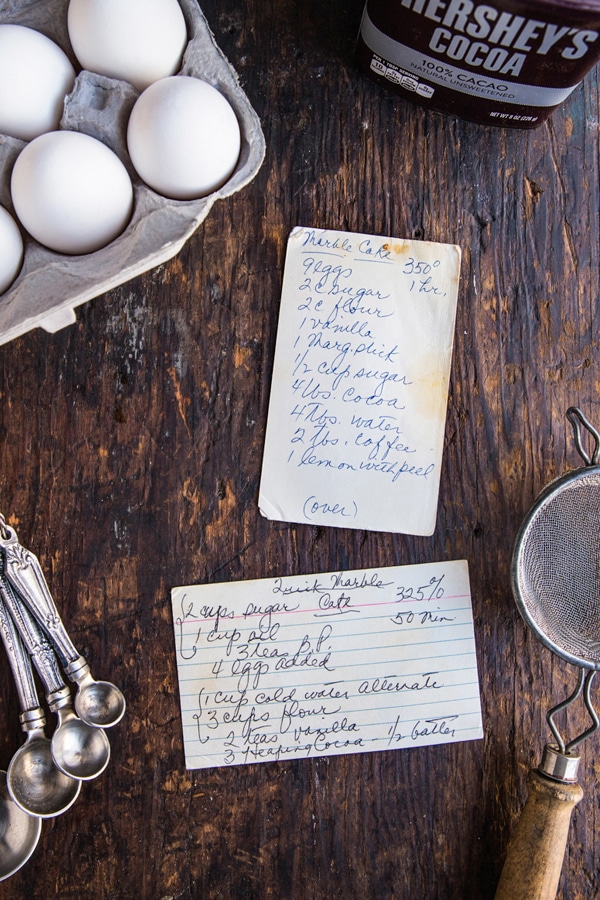 HERSHEY'S
COCOA
100% CACAO
NATURAL UNSWEETENED
NET WT 8 OZ (226 g)
Marble Cake 350°
9 eggs 1 hr.
2 c sugar
2 c flour
1 vanilla
1 Marg. stick
1/2 cup sugar
4 tbs. cocoa
4 Tbs. water
2 tbs. coffee
1 lemon with peel
(over)
Quick Marble
2 cups sugar Cake 325°
1 cup oil 50 min
3 teas B.P.
4 egg added
1 cup cold water alternate
3 cups flour
2 teas vanilla
3 Heaping Cocoa - 1/2 batter